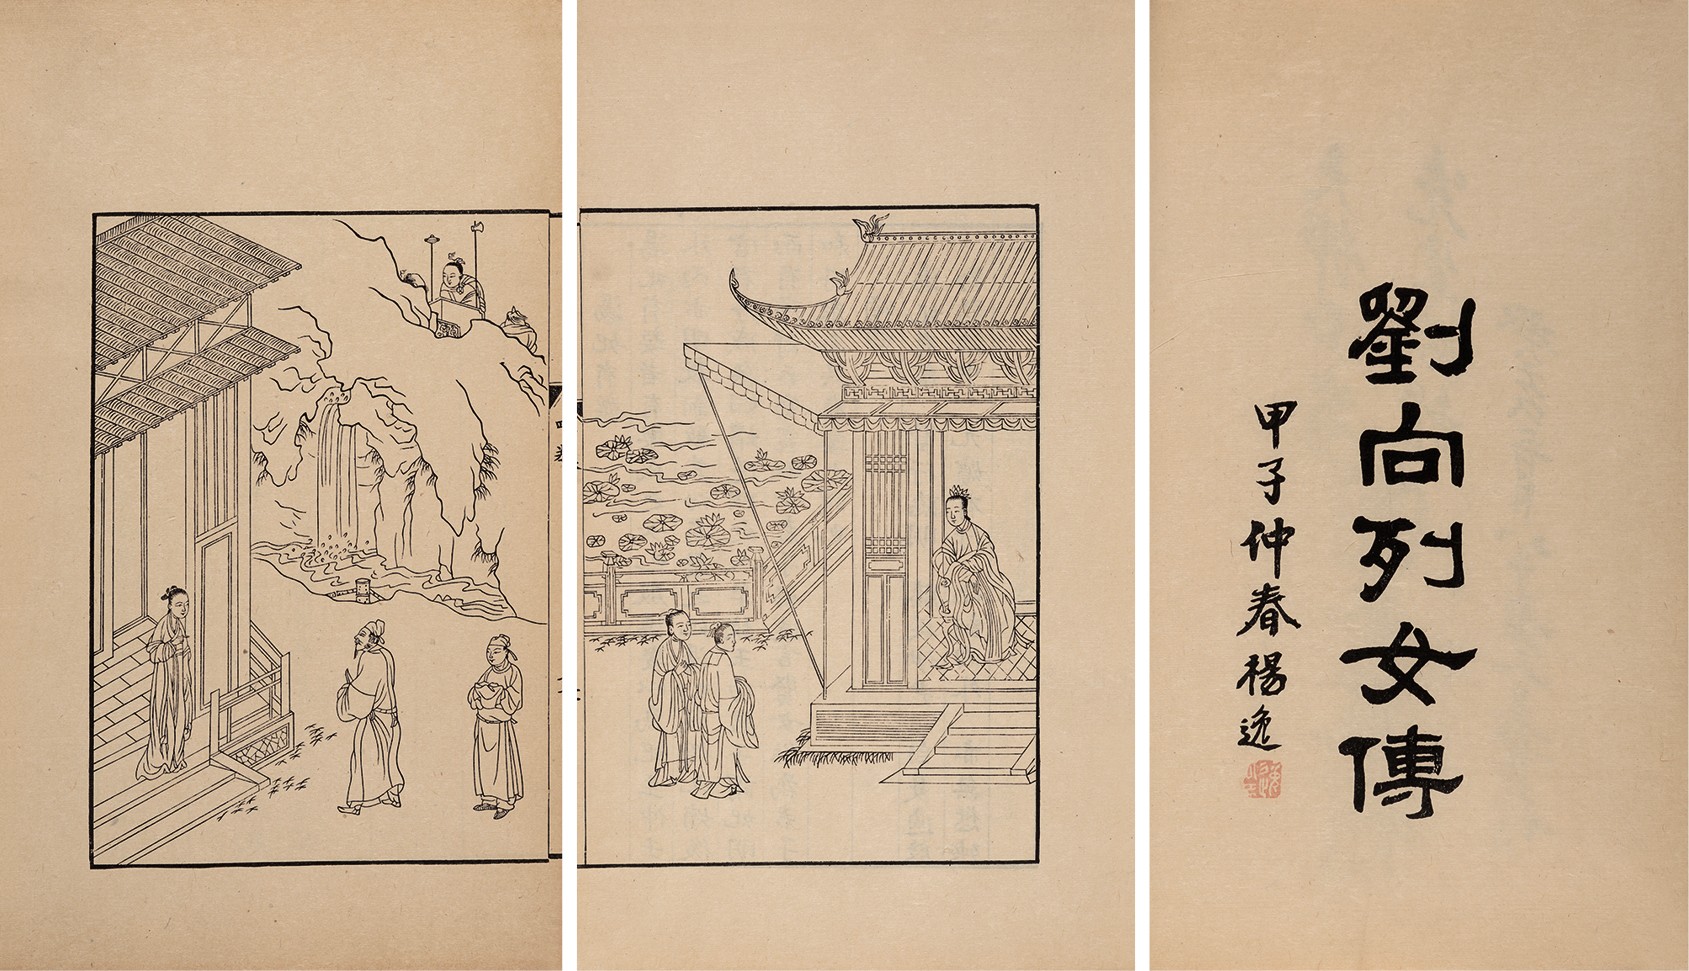 劉向列女傳
甲子仲春楊逸